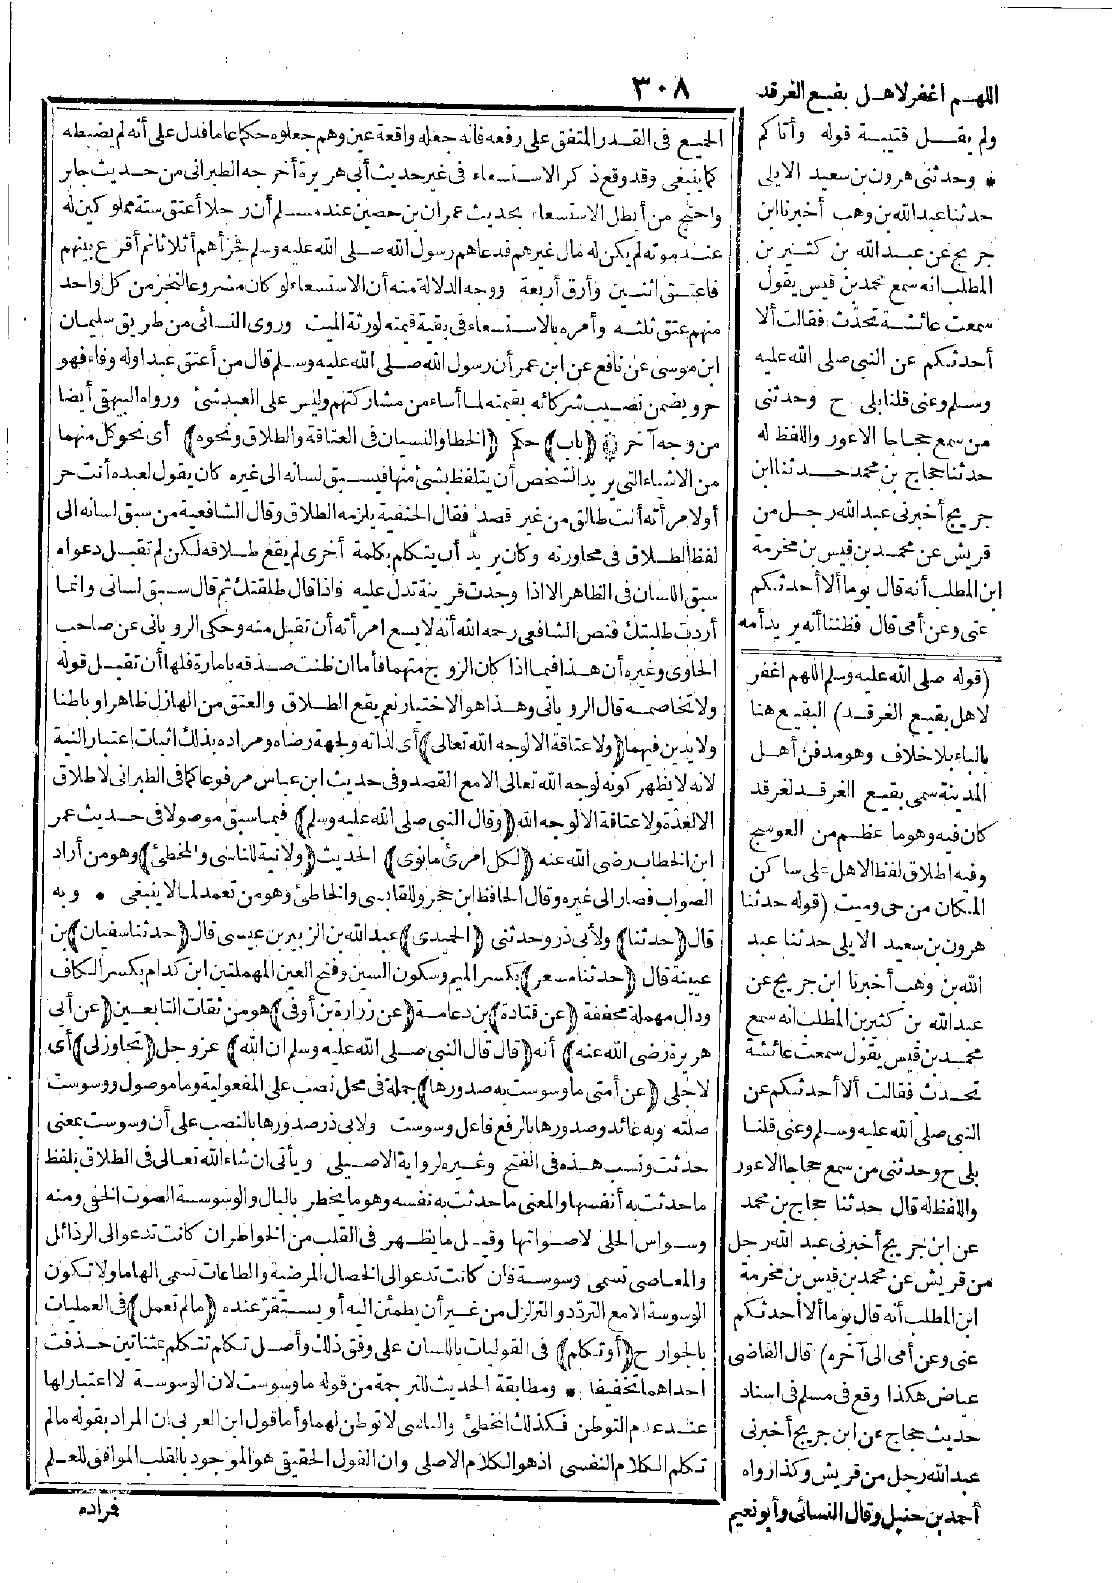 ٣٠٨
الجميع فى القدر المتفق على رفعه فانه جعله واقعة عين وهم جعلوه حكما عاما فدل على أنه لم يضبطه
كما ينبغى وقد وقع ذكر الاستسعاء فى غير حديث أبى هريرة أخرجه الطبرانى من حديث جابر
واحتج من أبطل الاستسعاء بحديث عمران بن حصين عند مسلم أن رجلا أعتق ستة مملوكين له
عند موته لم يكن له مال غيرهم فدعاهم رسول الله صلى الله عليه وسلم فجزأهم أثلاثا ثم أقرع بينهم
فاعتق اثنين وأرق أربعة ووجه الدلالة منه أن الاستسعاء لو كان مشروعا لنجز من كل واحد
منهم عتق ثلثه وأمره بالاستسعاء فى بقية قيمته لورثة الميت وروى النسائى من طريق سليمان
ابن موسى عن نافع عن ابن عمر أن رسول الله صلى الله عليه وسلم قال من أعتق عبدا وله وفاء فهو
حر ويضمن نصيب شركائه بقيمته لما أساء من مشاركتهم وليس على العبد شئ ورواه البيهقى أيضا
من وجه آخر ﴿(باب)﴾ حكم (الخطا والنسيان فى العتاقة والطلاق ونحوه) أى نحو كل منهما
من الاشياء التى يريد الشخص أن يتلفظ بشئ منها فيسبق لسانه الى غيره كان يقول لعبده أنت حر
أو لامرأته أنت طالق من غير قصد فقال الحنفية يلزمه الطلاق وقال الشافعية من سبق لسانه الى
لفظ الطلاق فى محاورته وكان يريد أن يتكلم بكلمة أخرى لم يقع طلاقه لكن لم تقبل دعواه
سبق اللسان فى الظاهر الا اذا وجدت قرينة تدل عليه فاذا قال طلقتك ثم قال سبق لسانى وانما
أردت طلبتك فنص الشافعى رحمه الله أنه لا يسع امرأته أن تقبل منه وحكى الرويانى عن صاحب
الحاوى وغيره أن هذا فيما اذا كان الزوج متهما فأما ان ظنت صدقه بامارة فلها أن تقبل قوله
ولا تخاصمه قال الرويانى وهذا هو الاختيار نعم يقع الطلاق والعتق من الهازل ظاهرا وباطنا
ولا يدين فيهما (ولا عتاقة الا لوجه الله تعالى) أى لذاته ولجهة رضاه ومراده بذلك اثبات اعتبار النية
لانه لا يظهر كونه لوجه الله تعالى الا مع القصد وفى حديث ابن عباس مرفوعا كما فى الطبرانى لا طلاق
الا لعدة ولا عتاقة الا لوجه الله (وقال النبى صلى الله عليه وسلم) فيما سبق موصولا فى حديث عمر
ابن الخطاب رضى الله عنه (لكل امرئ ما نوى) الحديث (ولا نية للناسى والمخطئ) وهو من أراد
الصواب فصار الى غيره وقال الحافظ ابن حجر وللقابسى والخاطئ وهو من تعمد لما لا ينبغى * وبه
قال (حدثنا) ولأبى ذر وحدثنى (الحميدى) عبد الله بن الزبير بن عيسى قال (حدثنا سفيان) بن
عيينة قال (حدثنا مسعر) بكسر الميم وسكون السين وفتح العين المهملتين ابن كدام بكسر الكاف
ودال مهملة مخففة (عن قتادة) بن دعامة (عن زرارة بن أوفى) هو من ثقات التابعين (عن أبى
هريرة رضى الله عنه) أنه (قال قال النبى صلى الله عليه وسلم ان الله) عز وجل (تجاوز لى) أى
لاجلى (عن أمتى ما وسوست به صدورها) جملة فى محل نصب على المفعولية وما موصول ووسوست
صلته وبه عائد وصدورها بالرفع فاعل وسوست ولابى ذر صدورها بالنصب على أن وسوست بمعنى
حدثت ونسب هذه فى الفتح وغيره لرواية الاصيلى ويأتى ان شاء الله تعالى فى الطلاق بلفظ
ما حدثت به أنفسها والمعنى ما حدثت به نفسه وهو ما يخطر بالبال والوسوسة الصوت الخفى ومنه
وسواس الحلى لاصواتها وقيل ما يظهر فى القلب من الخواطر ان كانت تدعو الى الرذائل
والمعاصى تسمى وسوسة فان كانت تدعو الى الخصال المرضية والطاعات تسمى الهاما ولا تكون
الوسوسة الا مع التردد والتزلزل من غير أن يطمئن اليه أو يستقر عنده (ما لم تعمل) فى العمليات
بالجوارح (أو تكلم) فى القوليات باللسان على وفق ذلك وأصل تكلم تتكلم بتاءين حذفت
احداهما تخفيفا * ومطابقة الحديث للترجمة من قوله ما وسوست لان الوسوسة لا اعتبار لها
عند عدم التوطن فكذلك المخطئ والناسى لا توطن لهما وأما قول ابن العربى ان المراد بقوله ما لم
تكلم الكلام النفسى اذ هو الكلام الاصلى وان القول الحقيقى هو الموجود بالقلب الموافق للعلم
فراده
اللهم اغفر لاهل بقيع الغرقد
ولم يقل قتيبة قوله وأتاكم
* وحدثنى هرون بن سعيد الايلى
حدثنا عبد الله بن وهب أخبرنا ابن
جريج عن عبد الله بن كثير بن
المطلب انه سمع محمد بن قيس يقول
سمعت عائشة تحدث فقالت ألا
أحدثكم عن النبى صلى الله عليه
وسلم وعنى قلنا بلى ح وحدثنى
من سمع حجاجا الاعور واللفظ له
حدثنا حجاج بن محمد حدثنا ابن
جريج أخبرنى عبد الله رجل من
قريش عن محمد بن قيس بن مخرمة
ابن المطلب أنه قال يوما ألا أحدثكم
عنى وعن أمى قال فظننا أنه يريد أمه
(قوله صلى الله عليه وسلم اللهم اغفر
لاهل بقيع الغرقد) البقيع هنا
بالباء بلا خلاف وهو مدفن أهل
المدينة سمى بقيع الغرقد لغرقد
كان فيه وهو ما عظم من العوسج
وفيه اطلاق لفظ الاهل على ساكن
المكان من حى وميت (قوله حدثنا
هرون بن سعيد الايلى حدثنا عبد
الله بن وهب أخبرنا ابن جريج عن
عبد الله بن كثير بن المطلب انه سمع
محمد بن قيس يقول سمعت عائشة
تحدث فقالت ألا أحدثكم عن
النبى صلى الله عليه وسلم وعنى قلنا
بلى ح وحدثنى من سمع حجاجا الاعور
واللفظ له قال حدثنا حجاج بن محمد
عن ابن جريج أخبرنى عبد الله رجل
من قريش عن محمد بن قيس بن مخرمة
ابن المطلب أنه قال يوما ألا أحدثكم
عنى وعن أمى الى آخره) قال القاضى
عياض هكذا وقع فى مسلم فى اسناد
حديث حجاج عن ابن جريج أخبرنى
عبد الله رجل من قريش وكذا رواه
أحمد بن حنبل وقال النسائى وأبو نعيم